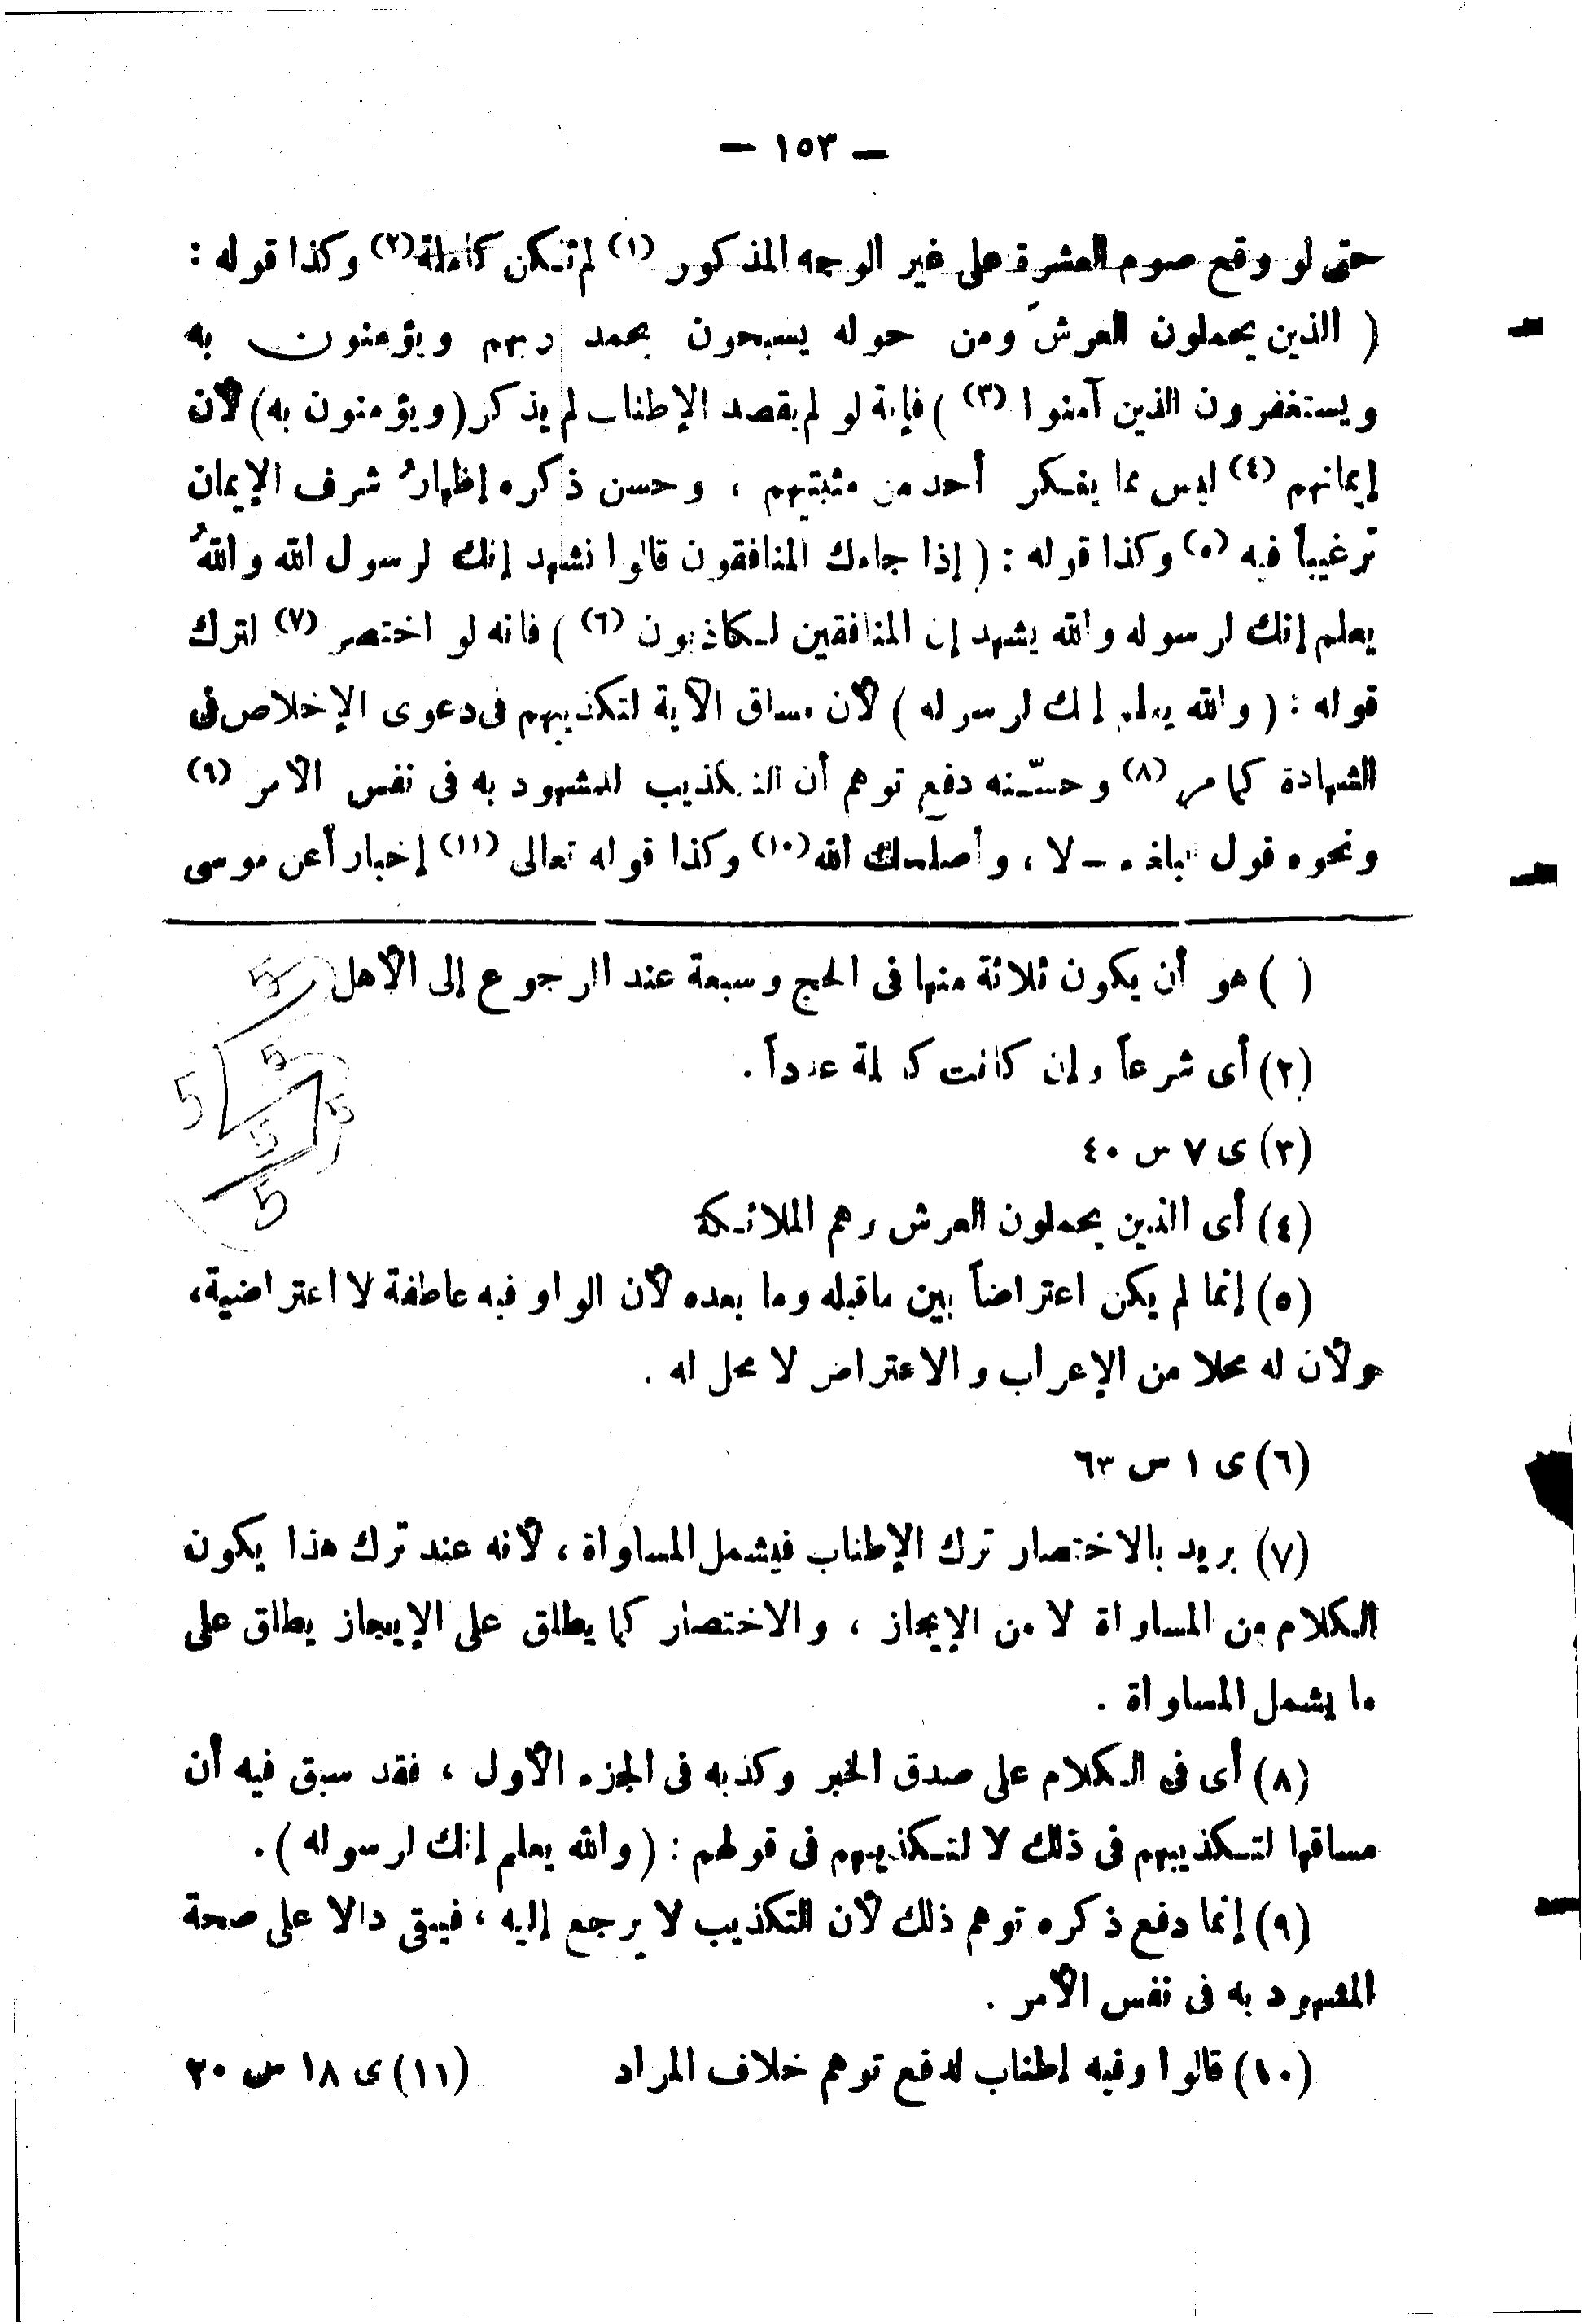 — ١٥٣ —
حتى لو وقع صوم العشرة على غير الوجه المذكور (١) لم تكن كاملة (٢) وكذا قوله :
( الذين يحملون العرش ومن حوله يسبحون بحمد ربهم ويؤمنون به
ويستغفرون للذين آمنوا (٣) ) فإنه لو لم يقصد الإطناب لم يذكر ( ويؤمنون به ) لأن
إيمانهم (٤) ليس مما ينكر أحد من مثبتيهم ، وحسن ذكره إظهارُ شرف الإيمان
ترغيباً فيه (٥) وكذا قوله : ( إذا جاءك المنافقون قالوا نشهد إنك لرسول الله واللهُ
يعلم إنك لرسوله والله يشهد إن المنافقين لكاذبون (٦) ) فانه لو اختصر (٧) لترك
قوله : ( والله يعلم إنك لرسوله ) لأن مساق الآية لتكذيبهم فى دعوى الإخلاص فى
الشهادة كما مر (٨) وحسّنه دفع توهم أن التكذيب للمشهود به فى نفس الأمر (٩)
ونحوه قول البلغاء – لا ، وأصلحك الله (١٠) وكذا قوله تعالى (١١) إخباراً عن موسى
( ) هو أن يكون ثلاثة منها فى الحج وسبعة عند الرجوع إلى الأهل
(٢) أى شرعاً وإن كانت كاملة عدداً .
(٣) ى ٧ س ٤٠
(٤) أى الذين يحملون العرش وهم الملائكة
(٥) إنما لم يكن اعتراضاً بين ما قبله وما بعده لأن الواو فيه عاطفة لا اعتراضية ،
ولأن له محلا من الإعراب والاعتراض لا محل له .
(٦) ى ١ س ٦٣
(٧) يريد بالاختصار ترك الإطناب فيشمل المساواة ، لأنه عند ترك هذا يكون
الكلام من المساواة لا من الإيجاز ، والاختصار كما يطلق على الإيجاز يطلق على
ما يشمل المساواة .
(٨) أى فى الكلام على صدق الخبر وكذبه فى الجزء الأول ، فقد سبق فيه أن
مساقها لتكذيبهم فى ذلك لا لتكذيبهم فى قولهم : ( والله يعلم إنك لرسوله ) .
(٩) إنما دفع ذكره توهم ذلك لأن التكذيب لا يرجع إليه ، فيبقى دالا على صحة
المشهود به فى نفس الأمر .
(١٠) قالوا وفيه إطناب لدفع توهم خلاف المراد (١١) ى ١٨ س ٢٠
5
5
5
5
5
5